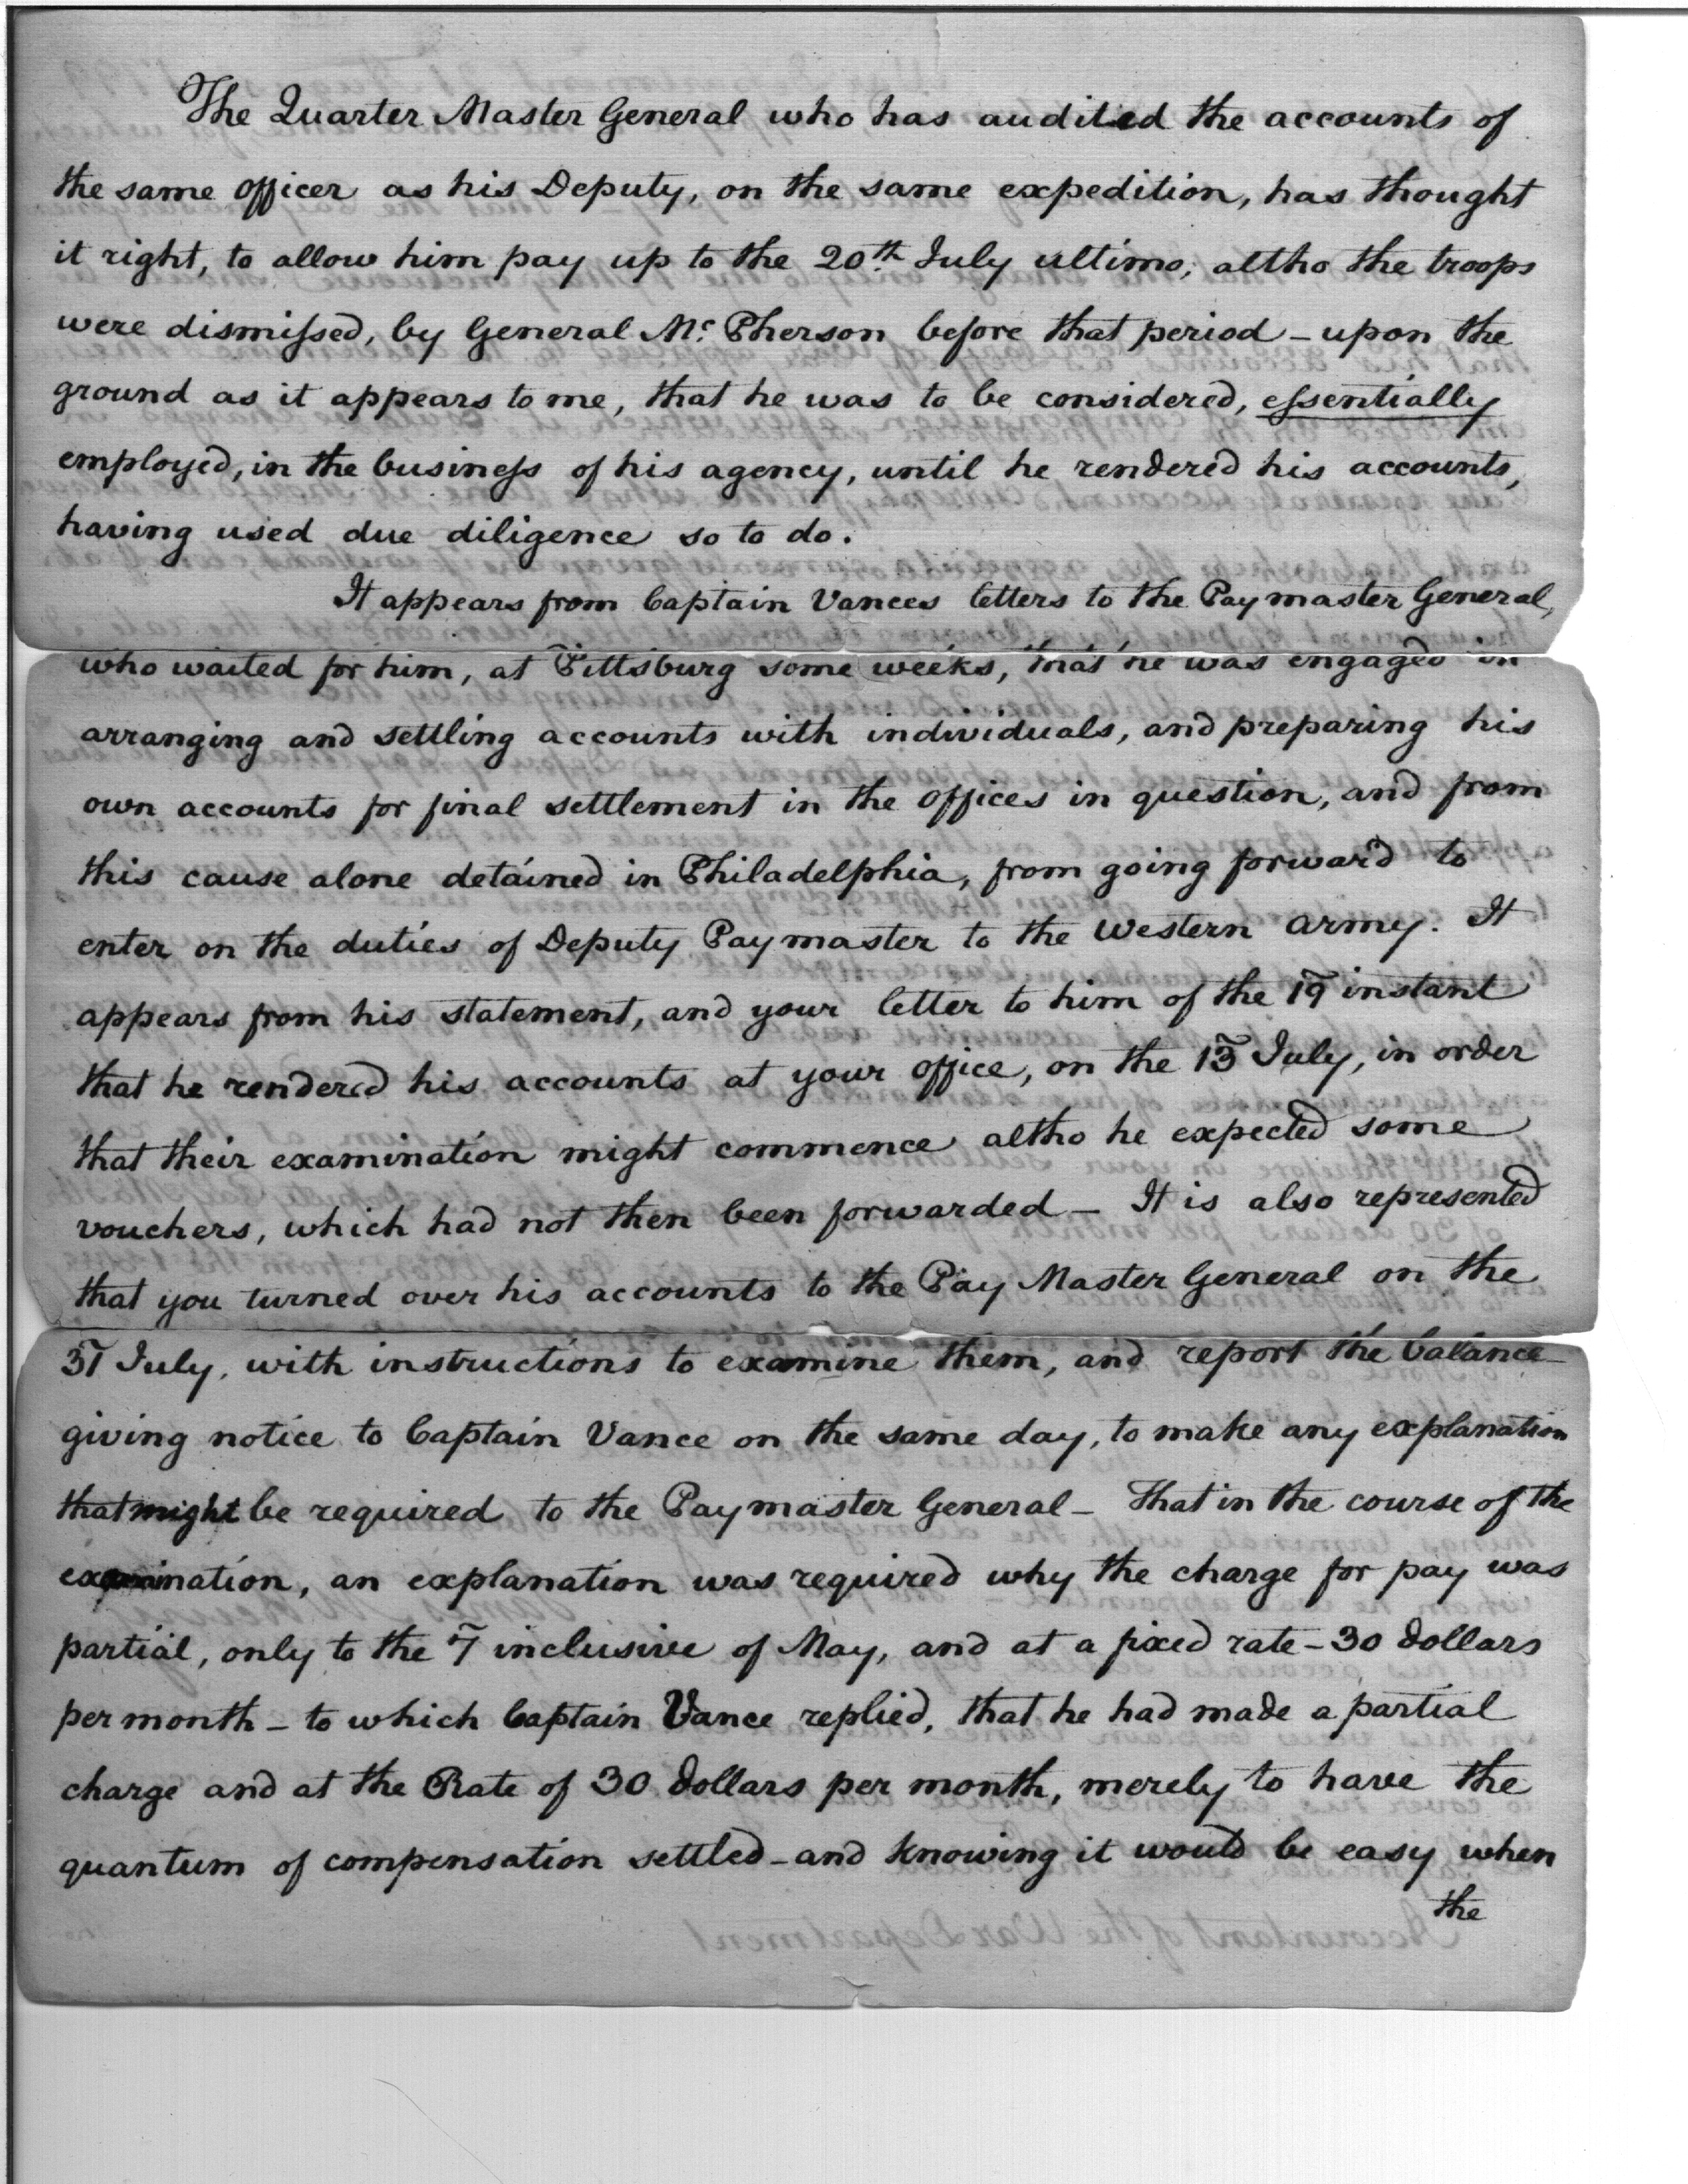 The Quarter Master General who has audited the accounts of
the same officer as his Deputy, on the same expedition, has thought
it right, to allow him pay up to the 20th July ultimo, altho the troops
were dismissed, by General Mc. Pherson before that period - upon the
ground as it appears to me, that he was to be considered, essentially
employed, in the business of his agency, until he rendered his accounts,
having used due diligence so to do.
It appears from Captain Vances letters to the Paymaster General,
who waited for him, at Pittsburg some weeks, that he was engaged in
arranging and settling accounts with individuals, and preparing his
own accounts for final settlement in the offices in question, and from
this cause alone detained in Philadelphia, from going forward to
enter on the duties of Deputy Paymaster to the Western Army. It
appears from his statement, and your letter to him of the 19 instant
that he rendered his accounts at your office, on the 13 July, in order
that their examination might commence altho he expected some
vouchers, which had not then been forwarded - It is also represented
that you turned over his accounts to the Pay Master General on the
31 July, with instructions to examine them, and report the balance
giving notice to Captain Vance on the same day, to make any explanation
that might be required to the Paymaster General - That in the course of the
examination, an explanation was required why the charge for pay was
partial, only to the 7 inclusive of May, and at a fixed rate - 30 dollars
per month - to which Captain Vance replied, that he had made a partial
charge and at the Rate of 30 dollars per month, merely to have the
quantum of compensation settled - and knowing it would be easy when
the